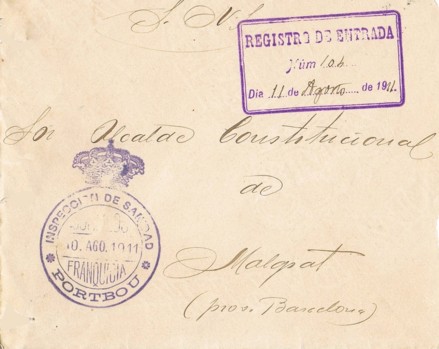 S. N.
REGISTRO DE ENTRADA
Núm 106
Día 11 de Agosto de 1911
Sr Alcalde Constitucional
de
Malgrat
(prov. Barcelona)
INSPECCION DE SANIDAD
10. AGO. 1911
FRANQUICIA
PORTBOU